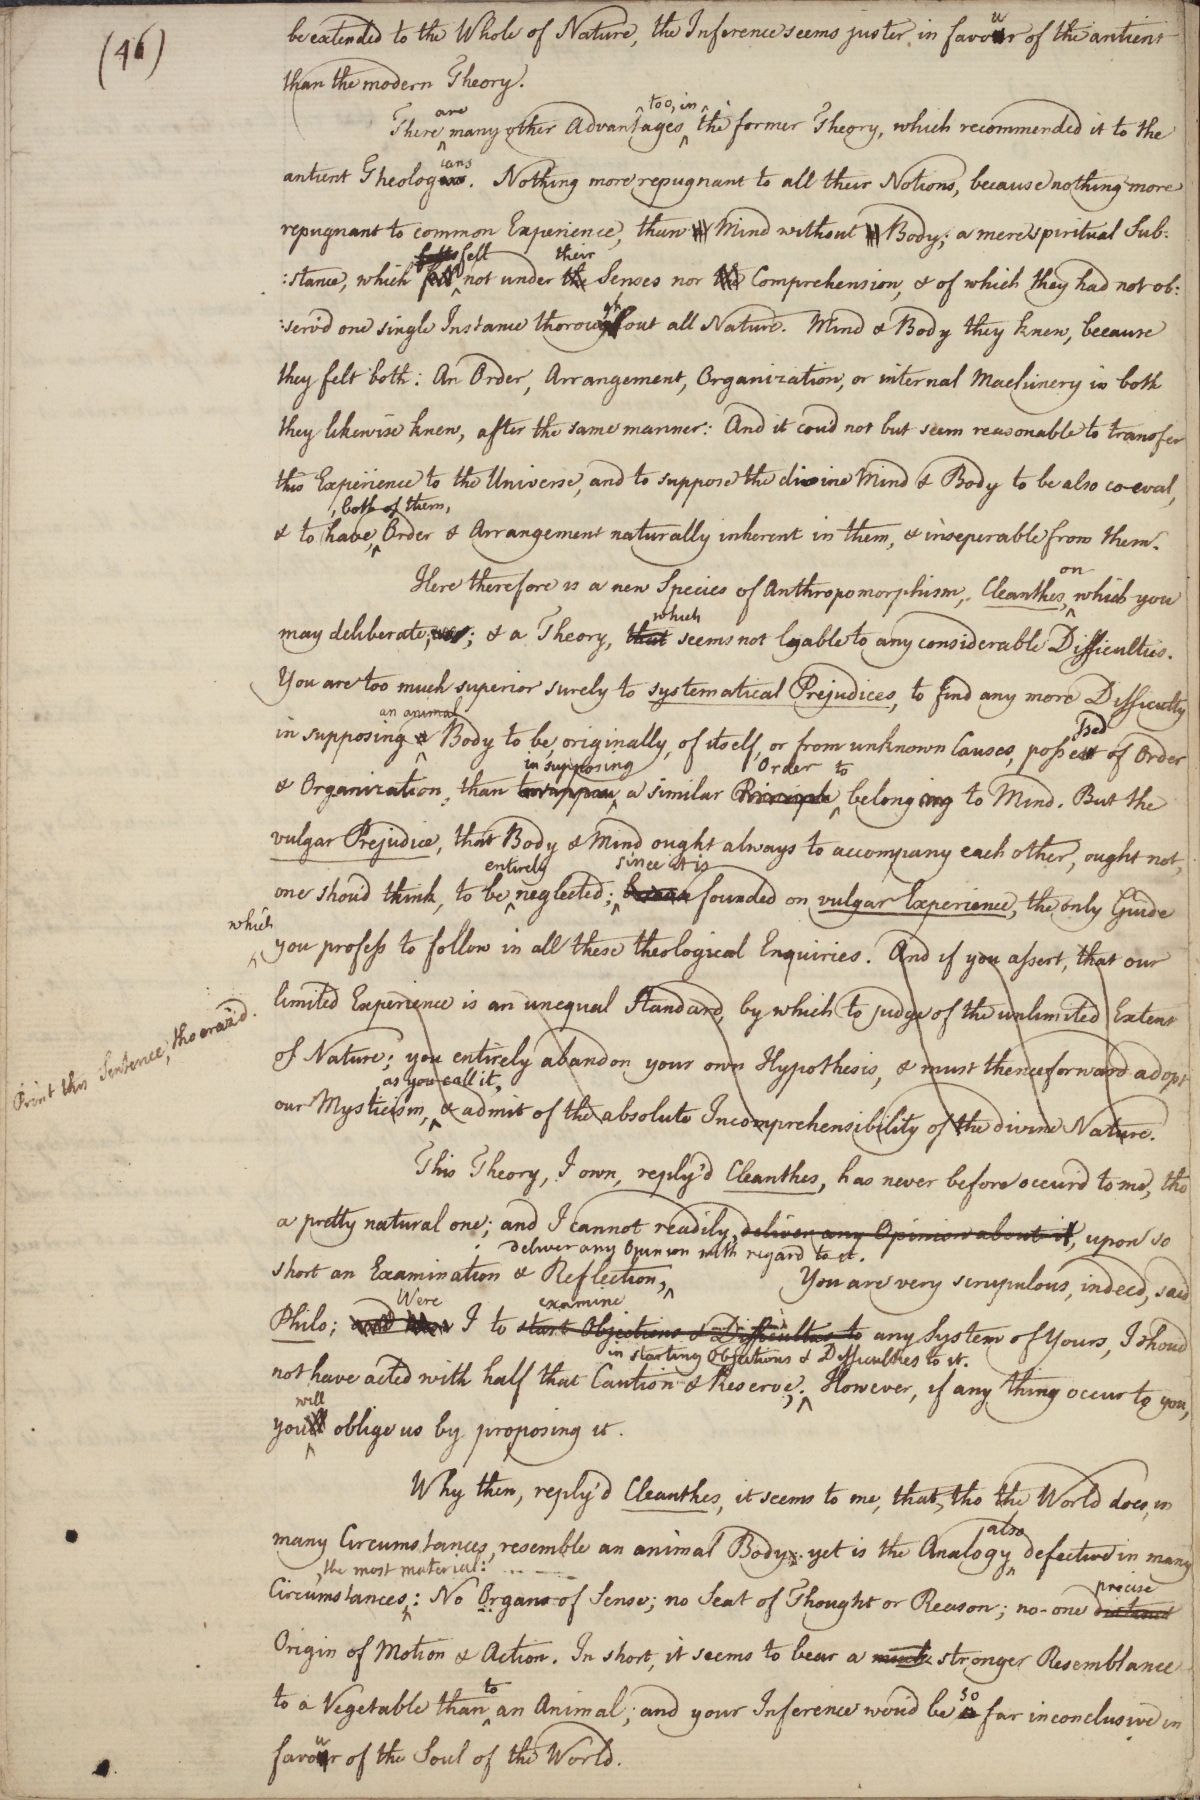 (46)
be extended to the Whole of Nature, the Inference seems juster in favour of the antient
than the modern Theory.
There are many other Advantages, too, in the former Theory, which recommended it to the
antient Theologians. Nothing more repugnant to all their Notions, because nothing more
repugnant to common Experience, than Mind without Body; a mere spiritual Sub:
:stance, which fell not under their Senses nor Comprehension, & of which they had not ob:
:serv'd one single Instance thoroughout all Nature. Mind & Body they knew, because
they felt both: An Order, Arrangement, Organization, or internal Machinery in both
they likewise knew, after the same manner: And it cou'd not but seem reasonable to transfer
this Experience to the Universe, and to suppose the divine Mind & Body to be also co-eval,
& to have, both of them, Order & Arrangement naturally inherent in them, & inseperable from them.
Here therefore is a new Species of Anthropomorphism, Cleanthes, on which you
may deliberate; & a Theory, which seems not lyable to any considerable Difficulties.
You are too much superior surely to systematical Prejudices, to find any more Difficulty
in supposing an animal Body to be, originally, of itself, or from unknown Causes, possessed of Order
& Organization, than in supposing a similar Order to belong to Mind. But the
vulgar Prejudice, that Body & Mind ought always to accompany each other, ought not,
one shou'd think, to be entirely neglected; since it is founded on vulgar Experience, the only Guide
which you profess to follow in all these theological Enquiries. And if you assert, that our
limited Experience is an unequal Standard, by which to judge of the unlimited Extent
of Nature; you entirely abandon your own Hypothesis, & must thenceforward adopt
our Mysticism, as you call it, & admit of the absolute Incomprehensibility of the divine Nature.
Print this Sentence, tho eraz'd.
This Theory, I own, reply'd Cleanthes, has never before occur'd to me, tho
a pretty natural one; and I cannot readily, deliver any Opinion about it, upon so
short an Examination & Reflection, deliver any Opinion with regard to it. You are very scrupulous, indeed, said
Philo; Were I to examine start Objections & Difficulties to any System of Yours, I shoud
not have acted with half that Caution & Reserve, in starting Objections & Difficulties to it. However, if any thing occur to you,
you will oblige us by proposing it.
Why then, reply'd Cleanthes, it seems to me, that, tho the World does, in
many Circumstances, resemble an animal Body; yet is the Analogy also defective in many
Circumstances, the most material: No Organs of Sense; no Seat of Thought or Reason; no one precise
Origin of Motion & Action. In short, it seems to bear a much stronger Resemblance
to a Vegetable than to an Animal; and your Inference wou'd be so far inconclusive in
favour of the Soul of the World.